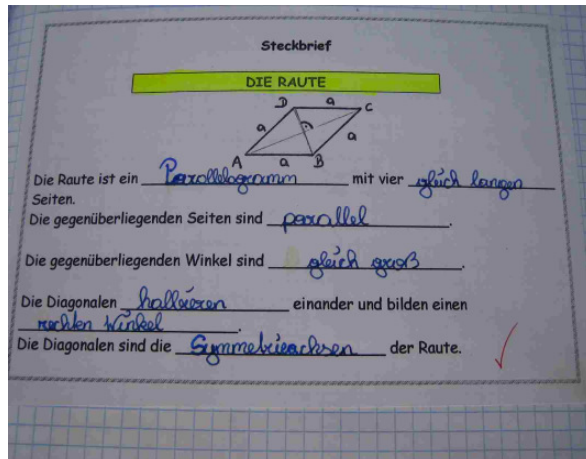 Steckbrief
DIE RAUTE
D a C
a a
A a B
Die Raute ist ein Parallelogramm mit vier gleich langen
Seiten.
Die gegenüberliegenden Seiten sind parallel.
Die gegenüberliegenden Winkel sind gleich groß.
Die Diagonalen halbieren einander und bilden einen
rechten Winkel.
Die Diagonalen sind die Symmetrieachsen der Raute.